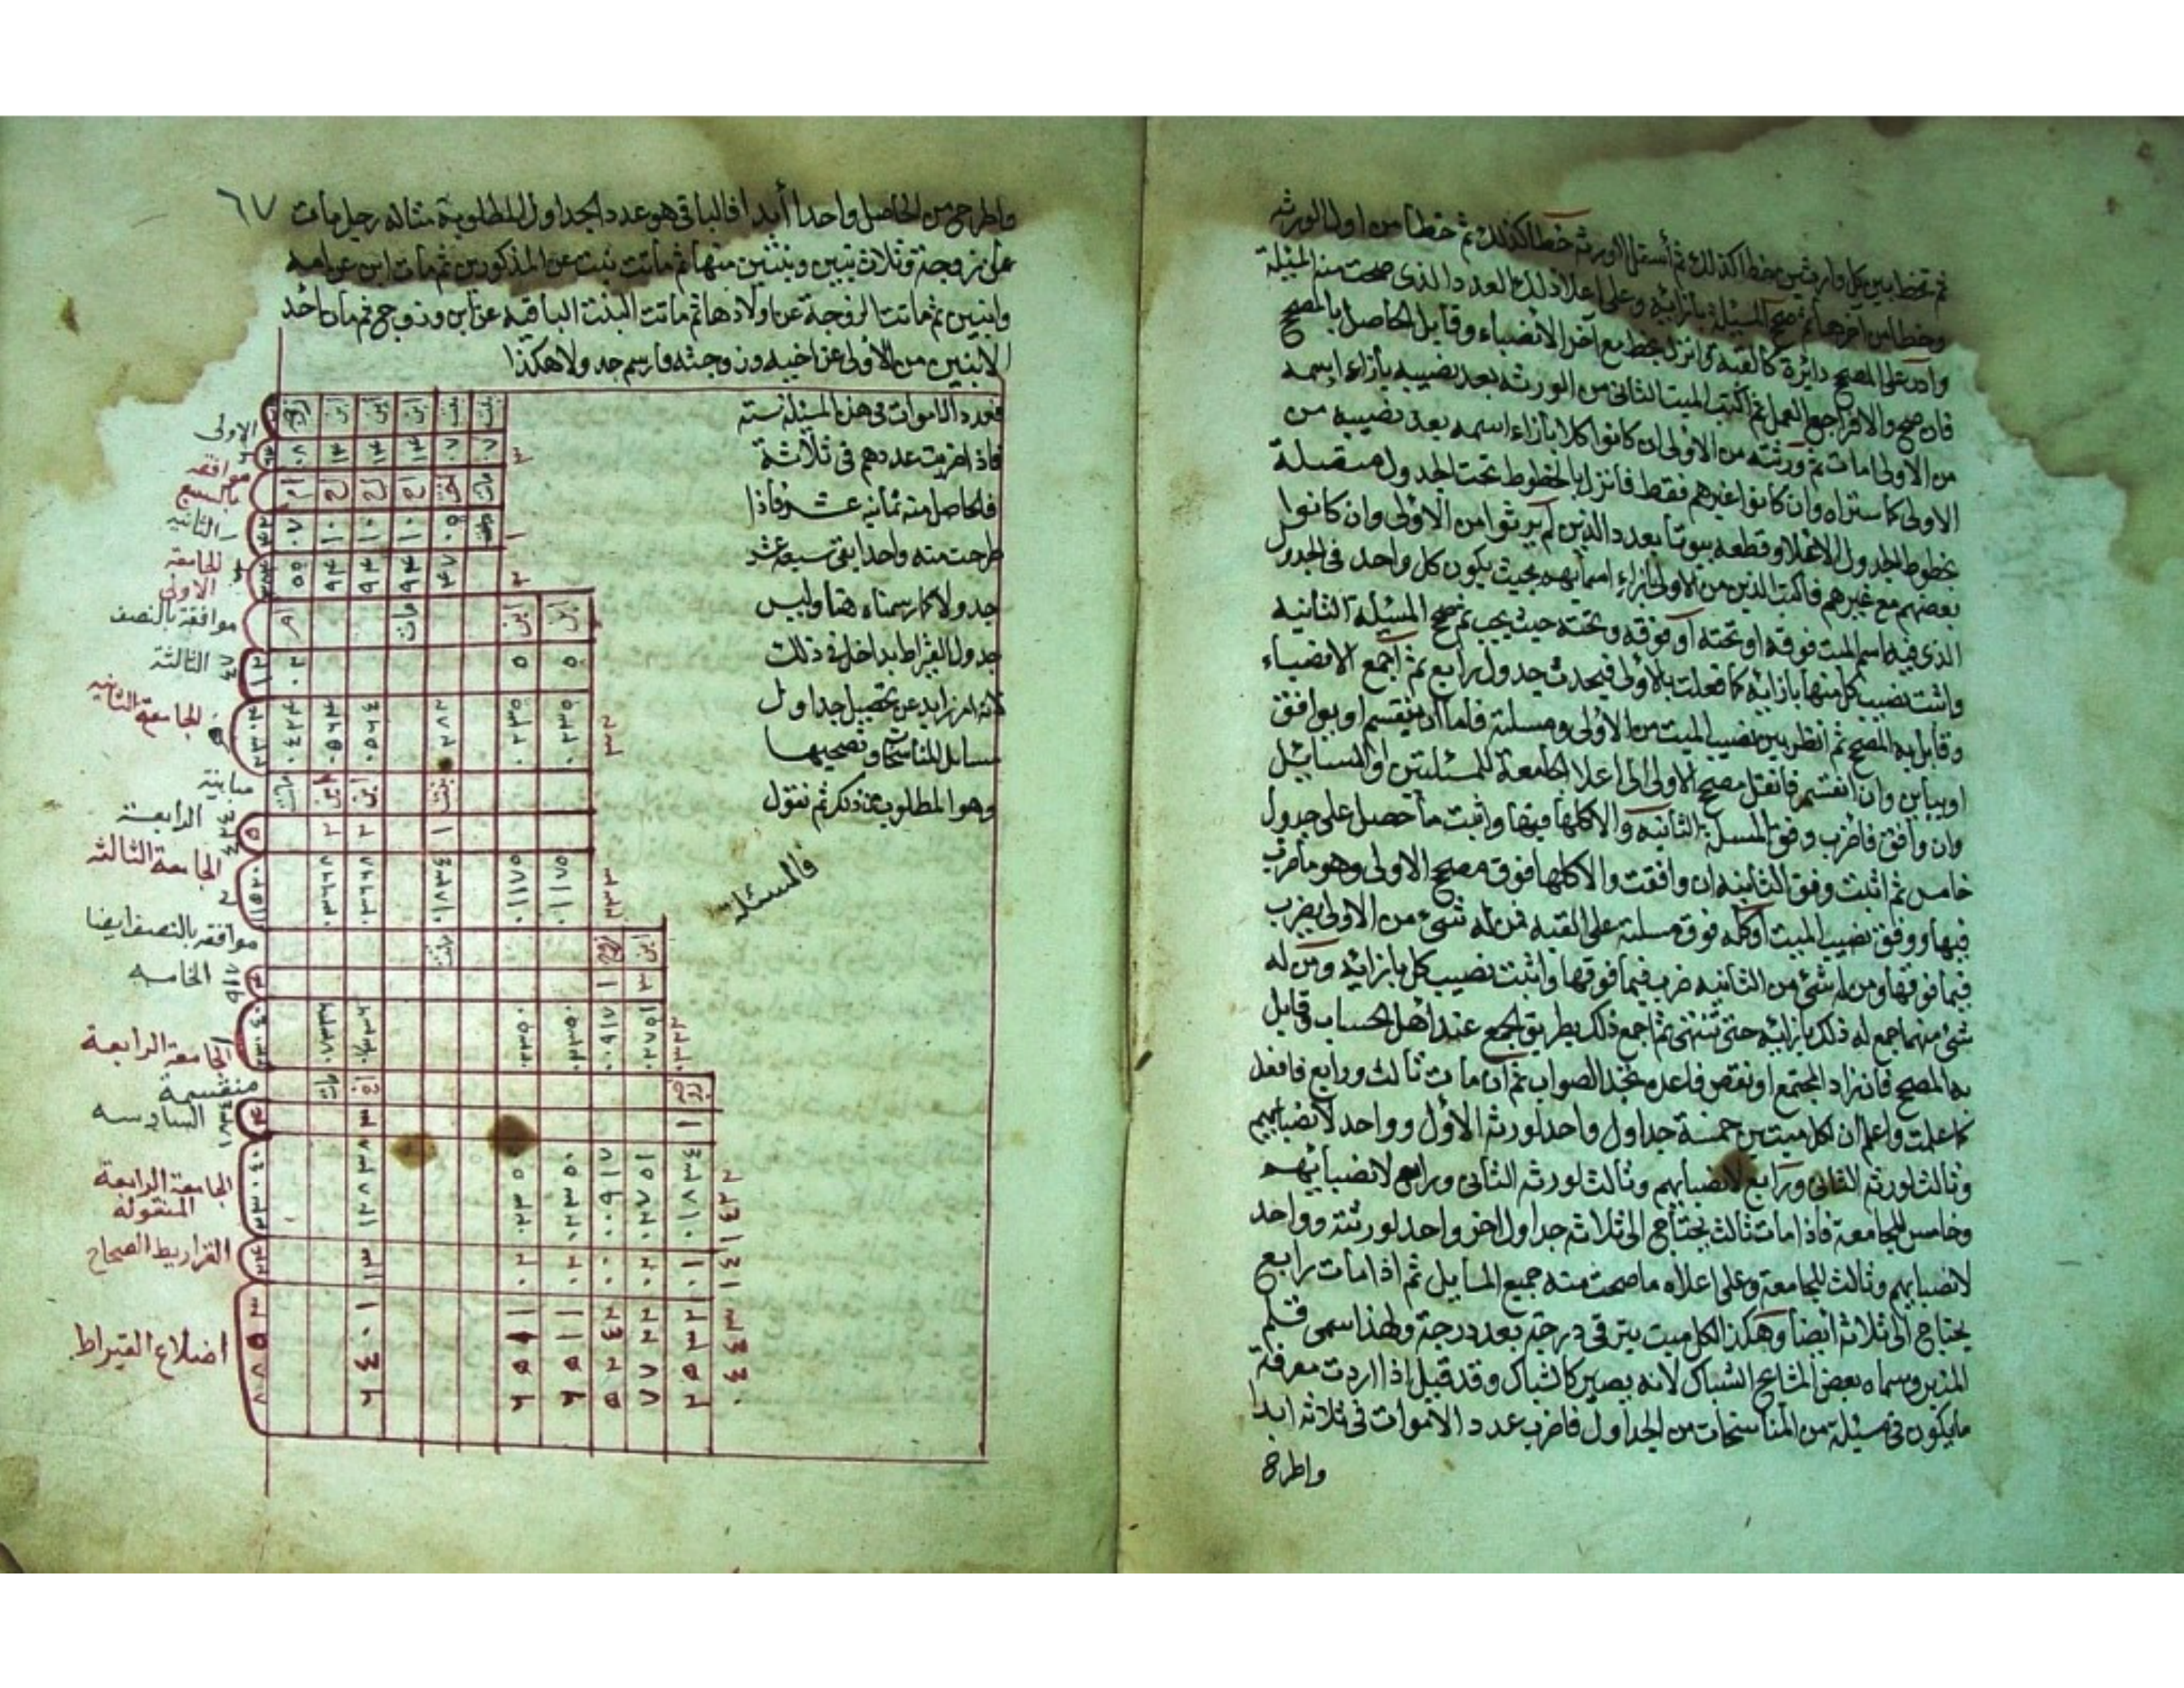 ثم تخط بين كل وارثين خطا كذلك ثم أسفل الورثه خطا كذلك ثم خطا من اول الورثه
وخطا من آخرهم ثم صحح المسئلة بازائه وعلى اعلا ذلك العدد الذى صحت منه المسئلة
وأدر على المصحح دائرة كالقبة وانزل بخط مع آخر الأنصباء وقابل الحاصل بالمصحح
فان صح والا فراجع العمل ثم اكتب الميت الثانى من الورثه بعد نصيبه بأزاء اسمه
من الاولى مات ثم ورثته من الأولى ان كانوا كلا بأزاء اسمه بعد نصيبه من
الاولى كما ستراه وان كانوا غيرهم فقط فانزل بالخطوط تحت الجدول متصلة
بخطوط الجدول الاعلا وقطعه بيوتا بعدد الذين لم يرثوا من الأولى وان كانوا
بعضهم مع غيرهم فاكتب الذين من الاولى بازاء اسمائهم بحيث يكون كل واحد فى الجدول
الذى فيه اسم الميت فوقه او تحته أو فوقه وتحته حيث يجب ثم صحح المسئلة الثانية
واثبت نصيب كل منها بازائه كما فعلت بالأولى فيحدث جدول رابع ثم اجمع الانصباء
وقابل به المصحح ثم انظر بين نصيب الميت من الأولى ومسئلته فاما أن ينقسم او يوافق
او يباين وان انقسم فانقل مصحح الأولى الى اعلا الجامعة للمسئلتين او المسائل
وان وافق فاضرب وفق المسئلة الثانية والا كلها فيها واثبت ما تحصل على جدول
خامس ثم اثبت وفق الثانيه ان وافقت والا كلها فوق مصحح الاولى وهو ما ضرب
فيها ووفق نصيب الميت أوكله فوق مسئلته على القبه فمن له شىء من الاولى يضرب
فيما فوقها ومن له شئ من الثانيه ضرب فيما فوقها واثبت نصيب كل بازائه ومن له
شئ منهما جمع له ذلك بازائه حتى تنتهى ثم اجمع ذلك بطريق الجمع عند اهل الحساب وقابل
به المصحح فان زاد المجتمع او نقص فاعده تجد الصواب ثم ان مات ثالث ورابع فافعل
كما علمت واعلم ان لكل ميتين خمسة جداول واحد لورثه الأول وواحد لأنصبائهم
وثالث لورثه الثانى ورابع لانصبائهم وثالث لورثه الثانى ورابع لانصبائهم
وخامس للجامعة فاذا مات ثالث يحتاج الى ثلاثه جداول اخر واحد لورثته وواحد
لانصبائهم وثالث للجامعة وعلى اعلاه ما صحت منه جميع المسايل ثم اذا مات رابع
يحتاج الى ثلاثه أيضا وهكذا لكل ميت يترقى درجة بعد درجة ولهذا سمى
المنبر وسماه بعض المشايخ الشباك لانه يصير كالشباك وقد قيل اذا اردت معرفة
ما يكون فى مسئلة من المناسخات من الجداول فاضرب عدد الأموات فى ثلاثه ابدا
واطرح
٦٧
واطرح من الحاصل واحدا أبدا فالباقى هو عدد الجداول المطلوبة مثاله رجل مات
عن زوجة وثلاث بنين وبنتين منها ثم ماتت بنت عن المذكورين ثم مات ابن عن امه
وابنين ثم ماتت الزوجة عن اولادها ثم ماتت البنت الباقيه عن ابن وزوج ثم مات احد
الابنين من الأولى عن اخيه وزوجته فارسم جدولا هكذا
فعدد الاموات فى هذه المسئلة سته
فاذا ضربت عددهم فى ثلاثة
فالحاصل منه ثمانيه عشر فاذا
طرحت منه واحدا بقى سبعة عشر
جدولا كما رسمناه هنا وليس
جدول القيراط بداخل فى ذلك
لانه امر زايد عن تحصيل جداول
مسائل المناسخات وتصحيحها
وهو المطلوب من ذكر ثم نقول
فالمسئلة
الاولى
موافقه بالسبع
الثانيه
الجامعة الاولى
موافقة بالنصف
الثالثة
الجامعة الثانيه
مباينة
الرابعة
الجامعة الثالثه
موافقه بالنصف ايضا
الخامسه
الجامعة الرابعة
منقسمة
السادسه
الجامعة الرابعة المنقوله
القراريط الصحاح
اضلاع القيراط
زوجه ابن ابن ابن بنت بنت
٠٨ ١٤ ١٤ ١٤ ٠٧ ٠٧
ام اخ اخ اخ اخت ماتت
٠٧ ١٠ ١٠ ١٠ ٠٥
٥٥ ٩٤ ٩٤ ٩٤ ٤٧
ام مات ابن ابن
٠٢ ٥ ٥
ماتت ابن ابن بنت
٥ ٢ ٢ ١
٠٣٦٦٨ ٠٣٦٦٨ ٠١٨٣٤ ٠١١٧٥ ٠١١٧٥
ماتت زوج ابن
٤ ١ ٣
٠٧٣٣٦ ٠٧٣٣٦ ٠٢٣٥٠ ٠٢٣٥٠ ٠٠٩١٧ ٠٢٧٥١
مات اخ
٤ ٣ ١
١٢٨٣٨ ٠٢٣٥٠ ٠٢٣٥٠ ٠٠٩١٧ ٠٢٧٥١ ٠١٨٣٤